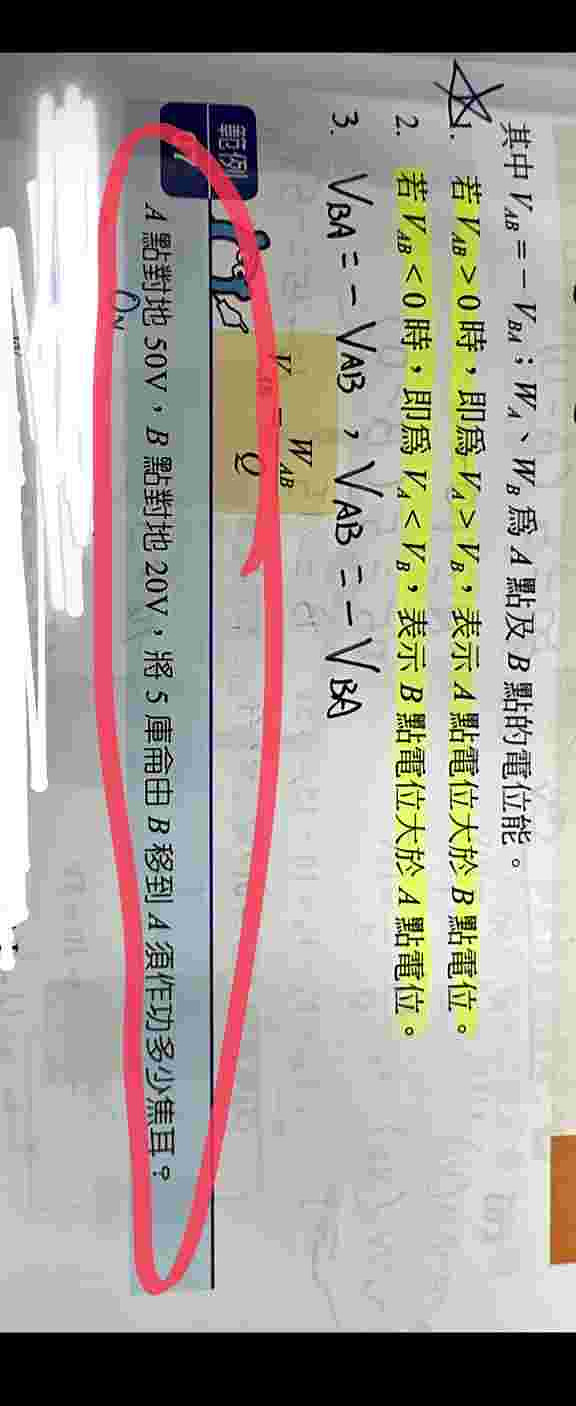 其中 V_AB = − V_BA；W_A、W_B 為 A 點及 B 點的電位能。
1. 若 V_AB > 0 時，即為 V_A > V_B，表示 A 點電位大於 B 點電位。
2. 若 V_AB < 0 時，即為 V_A < V_B，表示 B 點電位大於 A 點電位。
3. V_BA = − V_AB，V_AB = − V_BA
V_AB = W_AB / Q
範例
A 點對地 50V，B 點對地 20V，將 5 庫侖由 B 移到 A 須作功多少焦耳？